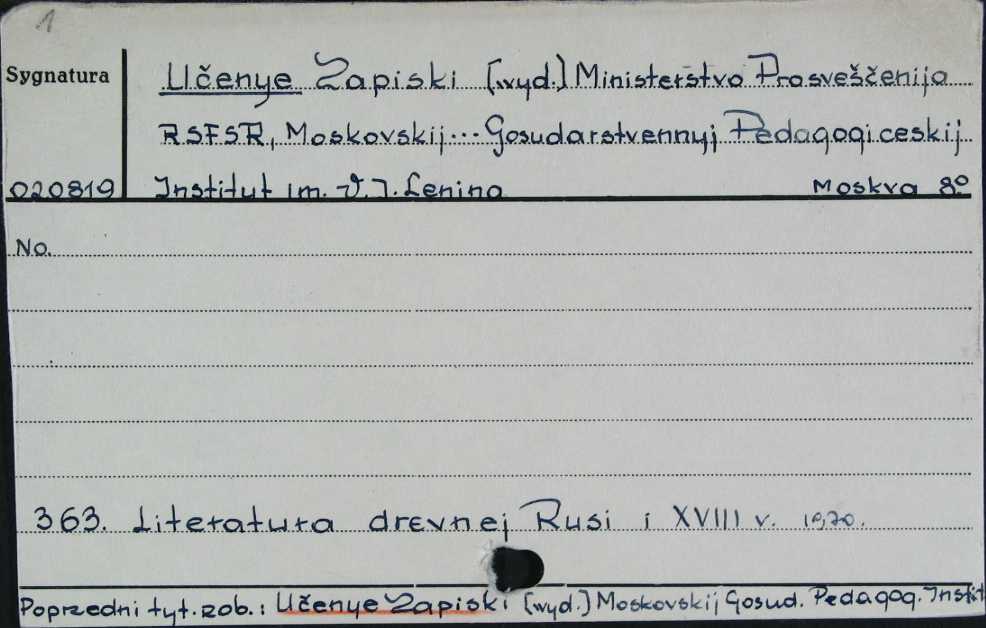 1
Sygnatura
Učenye Zapiski [wyd.] Ministerstvo Prosveščenija
RSFSR, Moskovskij... Gosudarstvennyj Pedagogiceskij
020819 Institut im. V. I. Lenina Moskva 8°
No.
363. Literatura drevnej Rusi i XVIII v. 1970.
Poprzedni tyt. zob.: Učenye Zapiski [wyd.] Moskovskij Gosud. Pedagog. Instit